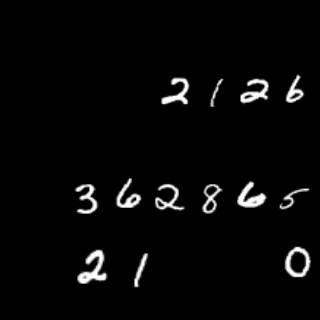 2126
362865
21 0